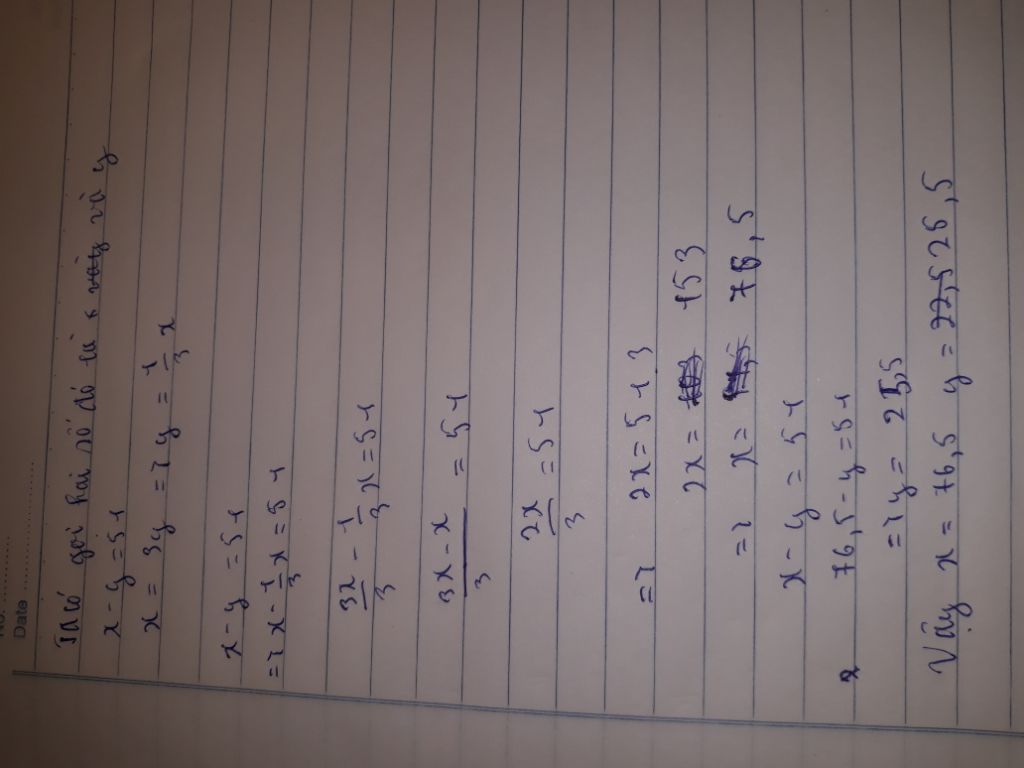 No. ............
Date ....................
Ta có gọi hai số đó là x này và y
x - y = 51
x = 3y => y = 1/3 x
x - y = 51
=> x - 1/3 x = 51
3x/3 - 1/3 x = 51
3x - x/3 = 51
2x/3 = 51
=> 2x = 51 . 3
2x = 153
=> x = 76,5
x - y = 51
76,5 - y = 51
=> y = 25,5
Vậy x = 76,5 y = 25,5